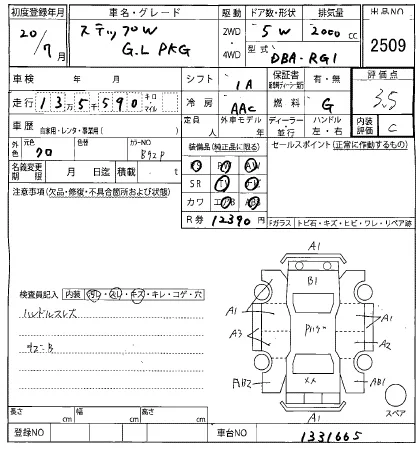 初度登録年月 車名・グレード 駆動 ドア数・形状 排気量 出品NO
20/7月 ステップW 2WD 5W 2000cc 2509
G.L PKG 4WD 型式 DBA-RG1
車検 年 月 シフト IA 保証書 有・無 評価点
走行 135千590 キロ・マイル 冷房 AAC 燃料 G 3.5
車歴 自家用・レンタ・事業用( ) 定員 人 外車モデル 年 ディーラー 並行 ハンドル 左・右 内装評価 C
外色 元色 クロ 色替 カラーNO B92P 装備品(純正品に限る) セールスポイント(正常に作動するもの)
名義変更期限 月 日迄 積載 t PS PW AW
注意事項(欠品・修復・不具合箇所および状態) SR TV
カワ エアB
R券 12390円
Fガラス トビ石・キズ・ヒビ・ワレ・リペア跡
A1
B1
検査員記入 内装 キズ・キレ・コゲ・穴
ハンドルスレ大
A1 A1
A3 A2
AB1
A1
スペア
長さ cm 幅 cm 高さ cm
登録NO 車台NO 1331665